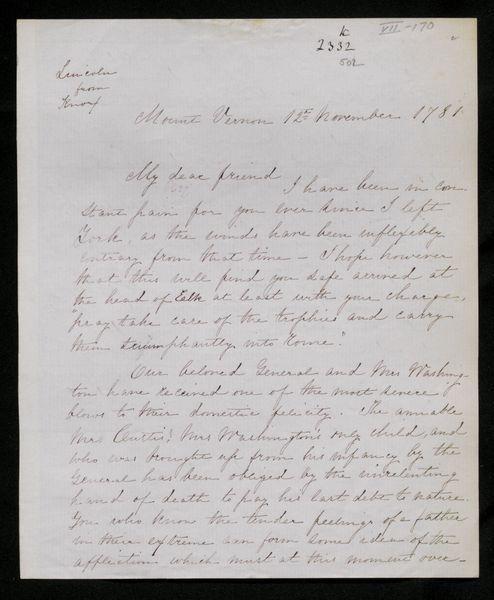 k
2332
502
VII-170
Lincoln
from
Knox
Mount Vernon 12th November 1781.
My dear friend
I have been in con
stant pain for you ever since I left
York, as the winds have been inflexibly
contrary from that time – I hope however
that this will find you safe arrived at
the head of Elk at least with your charge,
"pray take care of the trophies and carry
them triumphantly into Rome".
Our beloved General and Mrs Washing-
ton have received one of the most severe
blows to their domestic felicity. The amiable
Mr Curtis! Mrs Washington's only child, and
who was brought up from his infancy by the
General has been obliged by the unrelenting
hand of death to pay his last debt to nature.
You who know the tender feelings of a father
in their extreme can form some idea of the
affliction which must at this moment over-